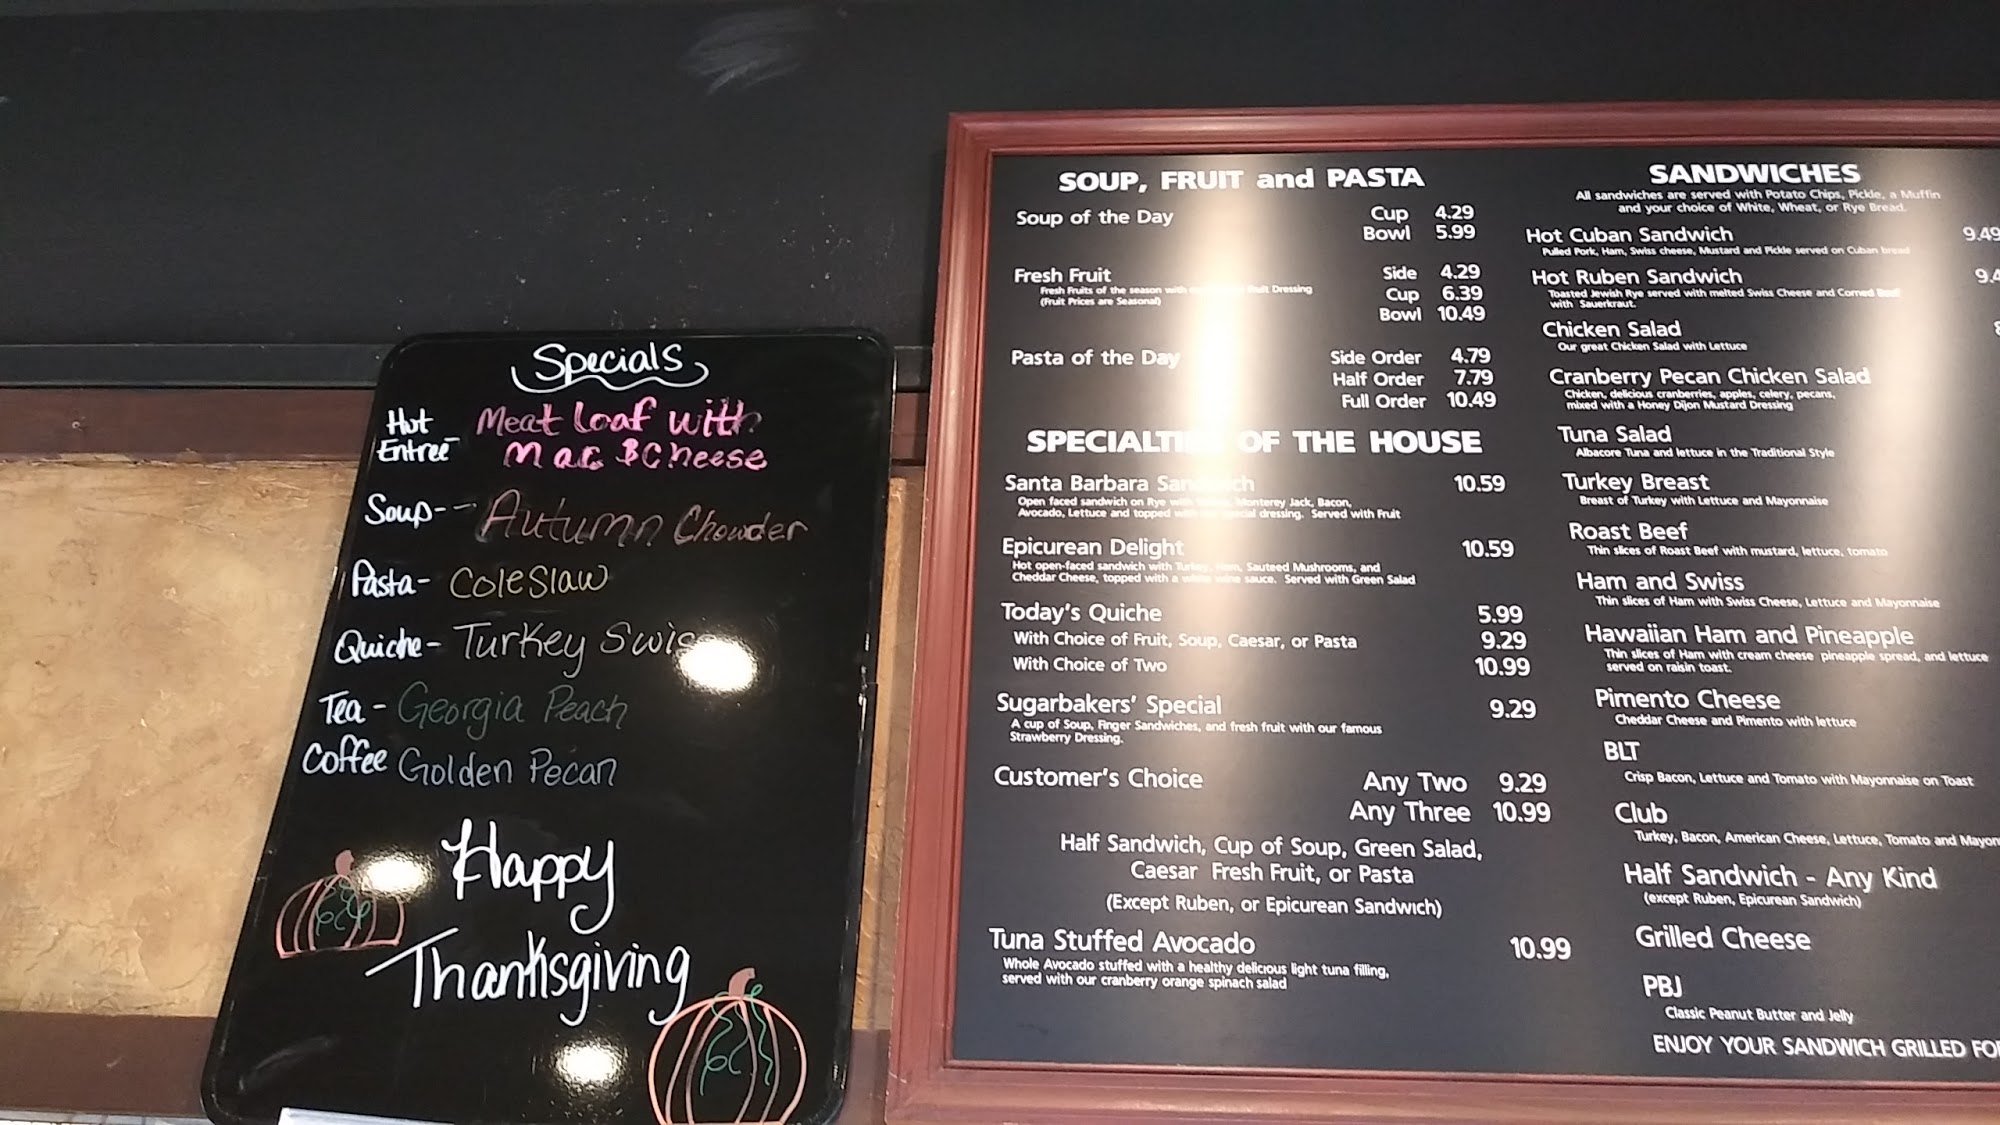 Specials
Hot Entrée - Meat Loaf with
Mac & Cheese
Soup-- Autumn Chowder
Pasta- Cole Slaw
Quiche- Turkey Swiss
Tea - Georgia Peach
Coffee Golden Pecan
Happy
Thanksgiving
SOUP, FRUIT and PASTA
Soup of the Day Cup 4.29
Bowl 5.99
Fresh Fruit Side 4.29
Fresh Fruits of the season with Fruit Dressing
(Fruit Prices are Seasonal)
Cup 6.39
Bowl 10.49
Pasta of the Day Side Order 4.79
Half Order 7.79
Full Order 10.49
SPECIALTIES OF THE HOUSE
Santa Barbara Sandwich 10.59
Open faced sandwich on Rye with Monterey Jack, Bacon,
Avocado, Lettuce and topped with our special dressing. Served with Fruit
Epicurean Delight 10.59
Hot open-faced sandwich with Turkey, Ham, Sauteed Mushrooms, and
Cheddar Cheese, topped with a white wine sauce. Served with Green Salad
Today's Quiche 5.99
With Choice of Fruit, Soup, Caesar, or Pasta 9.29
With Choice of Two 10.99
Sugarbakers' Special 9.29
A cup of Soup, Finger Sandwiches, and fresh fruit with our famous
Strawberry Dressing.
Customer's Choice Any Two 9.29
Any Three 10.99
Half Sandwich, Cup of Soup, Green Salad,
Caesar Fresh Fruit, or Pasta
(Except Ruben, or Epicurean Sandwich)
Tuna Stuffed Avocado 10.99
Whole Avocado stuffed with a healthy delicious light tuna filling,
served with our cranberry orange spinach salad
SANDWICHES
All sandwiches are served with Potato Chips, Pickle, a Muffin
and your choice of White, Wheat, or Rye Bread.
Hot Cuban Sandwich 9.49
Pulled Pork, Ham, Swiss cheese, Mustard and Pickle served on Cuban bread
Hot Ruben Sandwich 9.4
Toasted Jewish Rye served with melted Swiss Cheese and Corned Beef
with Sauerkraut.
Chicken Salad
Our great Chicken Salad with Lettuce
Cranberry Pecan Chicken Salad
Chicken, delicious cranberries, apples, celery, pecans,
mixed with a Honey Dijon Mustard Dressing
Tuna Salad
Albacore Tuna and lettuce in the Traditional Style
Turkey Breast
Breast of Turkey with Lettuce and Mayonnaise
Roast Beef
Thin slices of Roast Beef with mustard, lettuce, tomato
Ham and Swiss
Thin slices of Ham with Swiss Cheese, Lettuce and Mayonnaise
Hawaiian Ham and Pineapple
Thin slices of Ham with cream cheese pineapple spread, and lettuce
served on raisin toast.
Pimento Cheese
Cheddar Cheese and Pimento with lettuce
BLT
Crisp Bacon, Lettuce and Tomato with Mayonnaise on Toast
Club
Turkey, Bacon, American Cheese, Lettuce, Tomato and Mayon
Half Sandwich - Any Kind
(except Ruben, Epicurean Sandwich)
Grilled Cheese
PBJ
Classic Peanut Butter and Jelly
ENJOY YOUR SANDWICH GRILLED FO